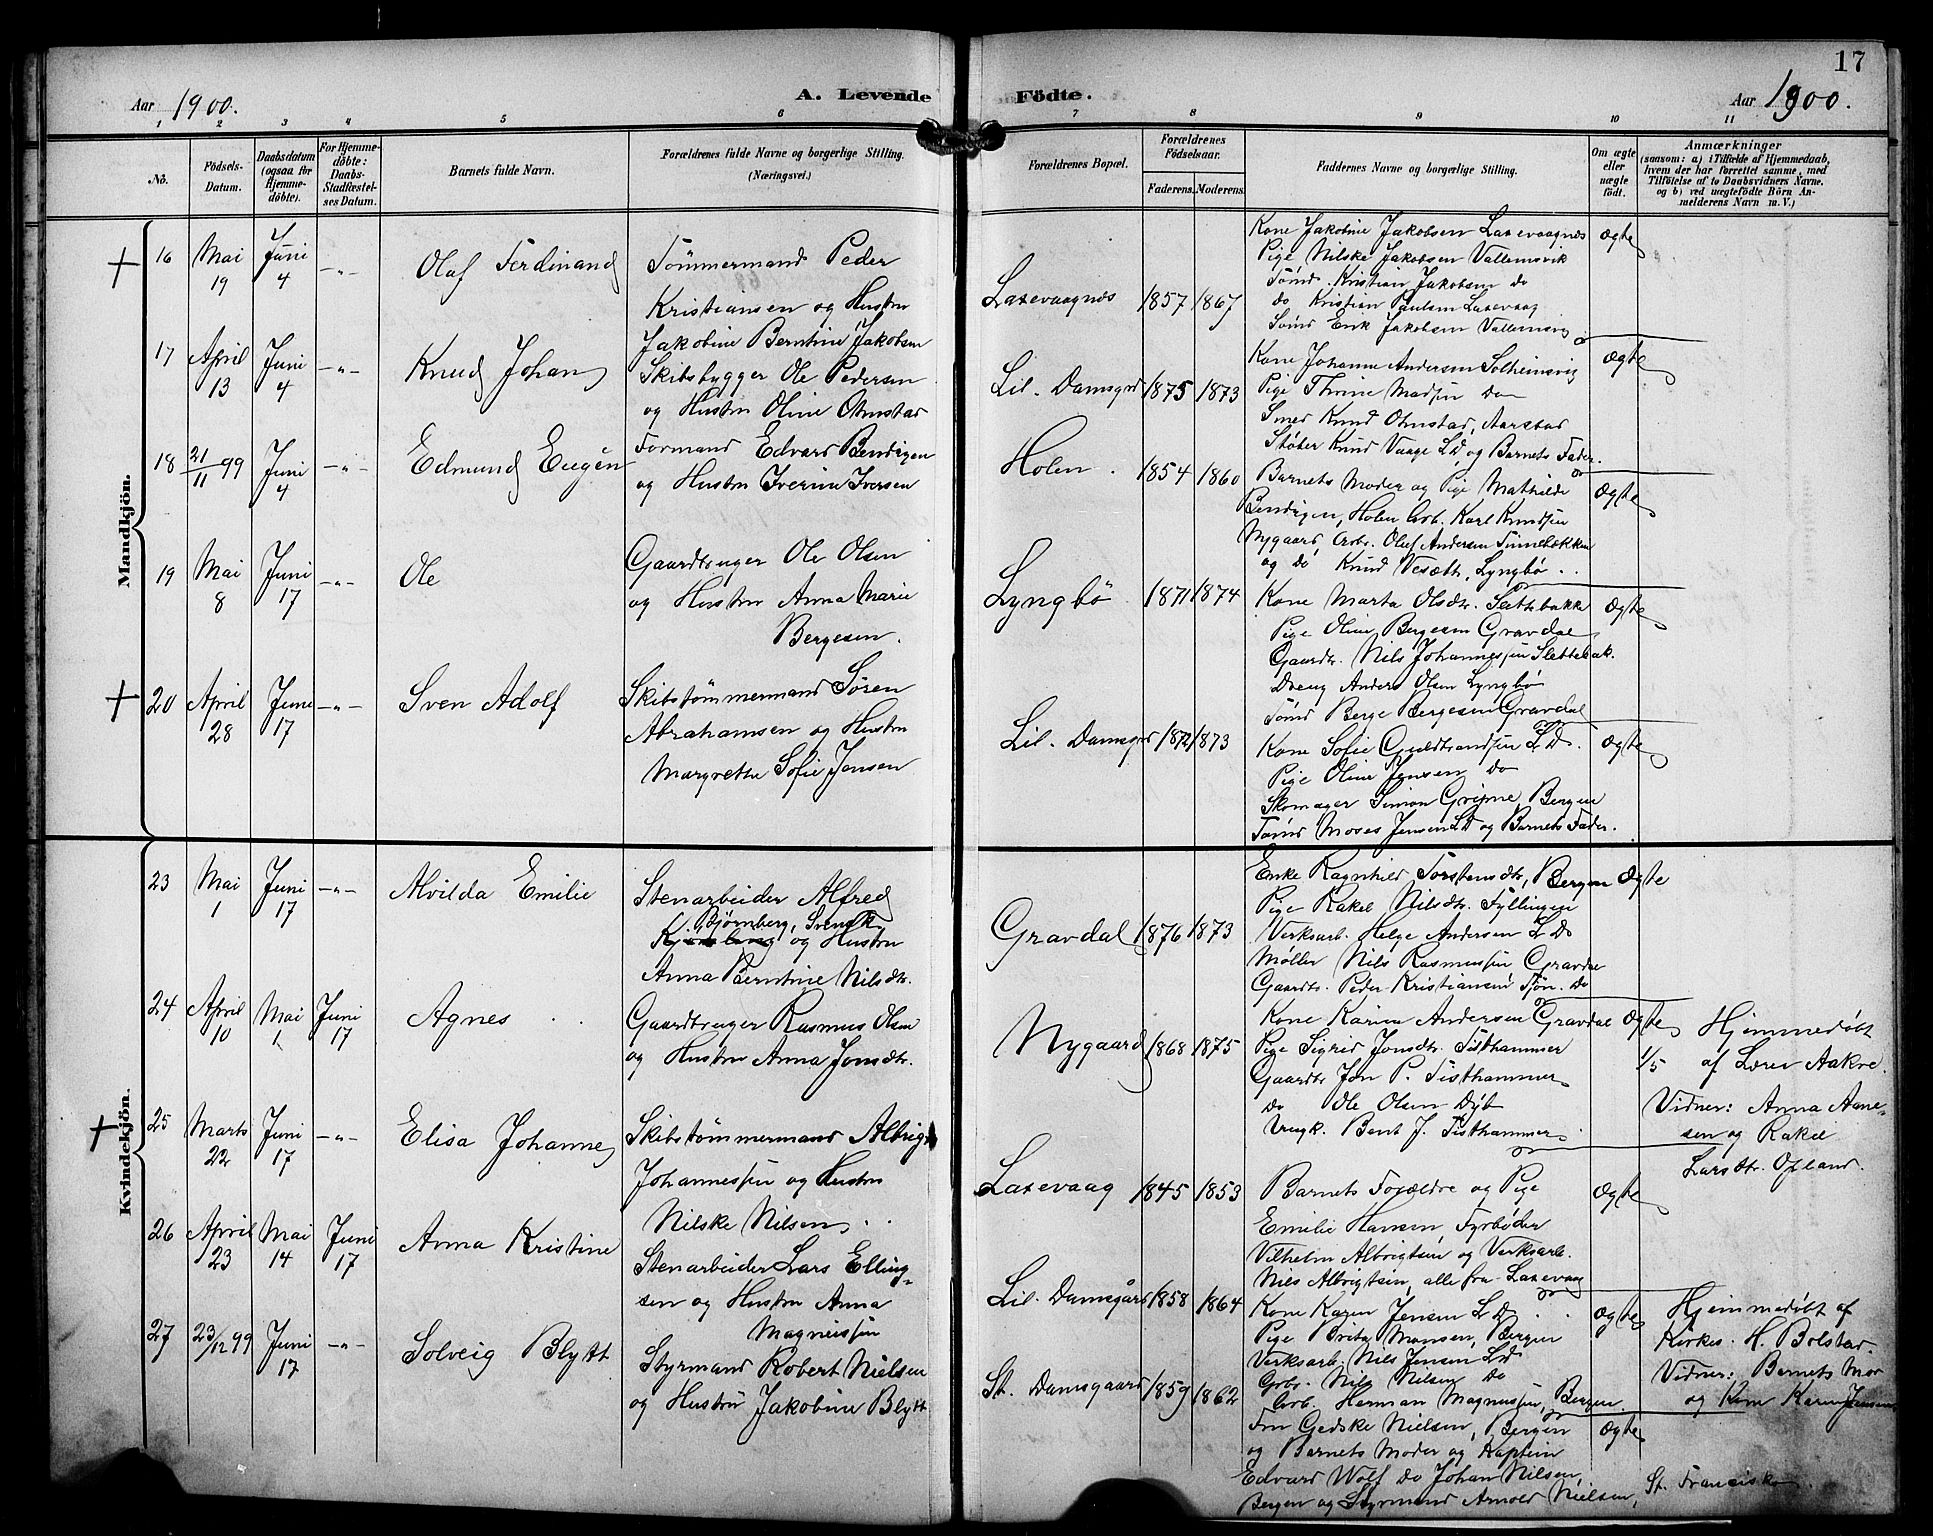 17
Aar 1900.
A. Levende Födte.
Aar 1900.
1 2 3 4 5 6 7 8 9 10 11
No.
Födsels-
Datum.
Daabsdatum
(ogsaa for
Hjemme-
döbte).
For Hjemme-
döbte:
Daabs-
Stadfæstel-
ses Datum.
Barnets fulde Navn.
Forældrenes fulde Navne og borgerlige Stilling.
(Næringsvei.)
Forældrenes Bopæl.
Forældrenes
Födselsaar.
Faderens. Moderens.
Faddernes Navne og borgerlige Stilling.
Om ægte
eller
uægte
födt.
Anmærkninger
(saasom: a) i Tilfælde af Hjemmedaab,
hvem der har forrettet samme, med
Tilföielse af to Daabsvidners Navne,
og b) ved uægtefödte Börn An-
melderens Navn m. V.)
Mandkjön.
16 Mai 19 Juni 4 -"- Olaf Ferdinand
Tömmermand Peder
Kristiansen og Hustru
Jakobine Berntine Jakobsen
Laxevaagnes 1857 1867
Kone Jakobine Jakobsen Laxevaagnes
Pige Nilske Jakobsen Vallemsvik
Tömd. Kristian Jakobsen do
do Kristian Paulsen Laxevaag
Tömd Erik Jakobsen Vallemsvig
Ægte
17 April 13 Juni 4 -"- Knud Johan
Skibsbygger Ole Pedersen
og Hustru Oline Omstad
Lil. Damsgrd 1875 1873
Kone Johanne Andersen Solheimsvig
Pige Thrine Madsen Do
Smed Knud Omstad, Aarstad
Støber Knud Vaage LD og Barnets Fader.
Ægte
18 21/11 99 Juni 4 -"- Edmund Eugèn
Formand Edvard Bendixen
og Hustru Iverine Iversen
Holen. 1854 1860
Barnets Moder og Pige Mathilde
Bendixen, Holen Arb. Karl Knudsen
Nygaard, Arb. Oluf Andersen
og do Knud Lyngbö
Ægte
19 Mai 8 Juni 17 -"- Ole
Gaardbruger Ole Olsen
og Hustru Anna Marie
Bergesen.
Lyngbö 1871 1874
Kone Marta Olsdtr. Slettebakke
Pige Oline Bergesen Gravdal
Gaardb. Nils Johannessen Slettebak.
Dreng Anders Olsen Lyngbö
Tömd Berge Bergesen Gravdal
Ægte
20 April 28 Juni 17 -"- Sven Adolf
Skibstömmermand Sören
Abrahamsen og Hustru
Margrethe Sofie Jensen
Lil. Damsgrd 1872 1873
Kone Sofie Guldbrandsen LD.
Pige Oline Jensen Do
Skomager Simon Grijme Bergen
Tömd Moses Jensen LD og Barnets Fader.
Ægte
Kvindekjön.
23 Mai 1 Juni 17 -"- Alvilda Emilie
Stenarbeider Alfred
Bjørnberg, Svensk
og Hustru
Anna Berntine Nilsdtr.
Gravdal 1876 1873
Enke Ragnhild Torstensdtr, Bergen
Pige Rakel Nilsdtr. Fyllingen
Verksarb. Helge Andersen LD
Møller Nils Rasmussen Gravdal
Gaardb. Peder Kristiansen Do
Ægte
24 April 10 Mai 1 Juni 17 Agnes
Gaardbruger Rasmus Olsen
og Hustru Anna Jonsdtr.
Nygaard 1868 1875
Kone Karen Andersen Gravdal
Pige Sigrid Jonsdtr. Tisthammer
Gaardb. Jon P. Tisthammer
Do Ole Olsen Dyb
Ungk. Bent J. Tisthammer
Ægte
Hjemmedøbt
1/5 af Lærer Aakre.
Vidner: Anna Aane-
sen og Rakel
Larsdtr. Opland.
25 Marts 22 Juni 17 -"- Elisa Johanne
Skibstömmermand Albrigt
Johannessen og Hustru
Nilske Nilsen
Laxevaag 1845 1853
Barnets Forældre og Pige
Emilie Hansen, Fyrbøder
Vilhelm Albrigtsen og Verksarb.
Nils Albrigtsen, alle fra Laxevaag
Ægte
26 April 23 Mai 14 Juni 17 Anna Kristine
Stenarbeider Lars Elling-
sen og Hustru Anna
Magnussen
Lil. Damsgård 1858 1864
Kone Karen Jensen LD
Pige Brita Monsen, Bergen
Verksarb. Nils Jensen LD
Arb. Nils Nilsen Do
Arb. Herman Magnussen, Bergen
Ægte
Hjemmedøbt af
Kirkes. H. Bolstad.
Vidner: Barnets Mor
og Kone Karen Jensen
27 23/12 99 Juni 17 -"- Solveig Blytt
Styrmand Robert Nielsen
og Hustru Jakobine Blytt
St. Damsgaard 1859 1862
Fru Gedske Nielsen, Bergen
og Barnets Moder og Kaptein
Edvard Wolf Do Johan Nilsen,
Bergen og Styrmand Arnold Nielsen, St. Francisko.
Ægte